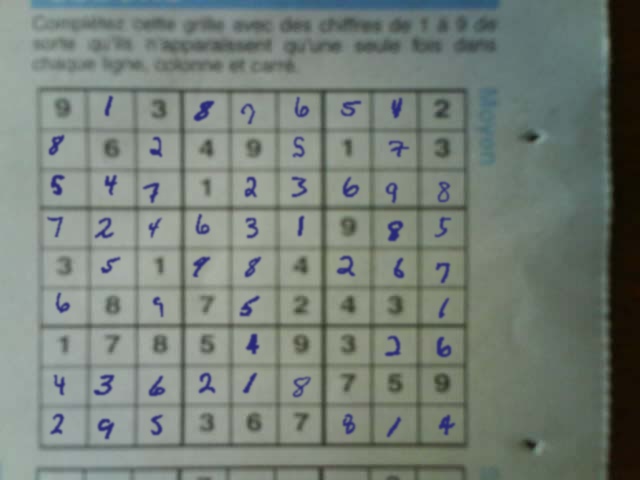 Complétez cette grille avec des chiffres de 1 à 9 de
sorte qu'ils n'apparaissent qu'une seule fois dans
chaque ligne, colonne et carré.
Moyen
9 1 3 8 7 6 5 4 2
8 6 2 4 9 5 1 7 3
5 4 7 1 2 3 6 9 8
7 2 4 6 3 1 9 8 5
3 5 1 9 8 4 2 6 7
6 8 9 7 5 2 4 3 1
1 7 8 5 4 9 3 2 6
4 3 6 2 1 8 7 5 9
2 9 5 3 6 7 8 1 4